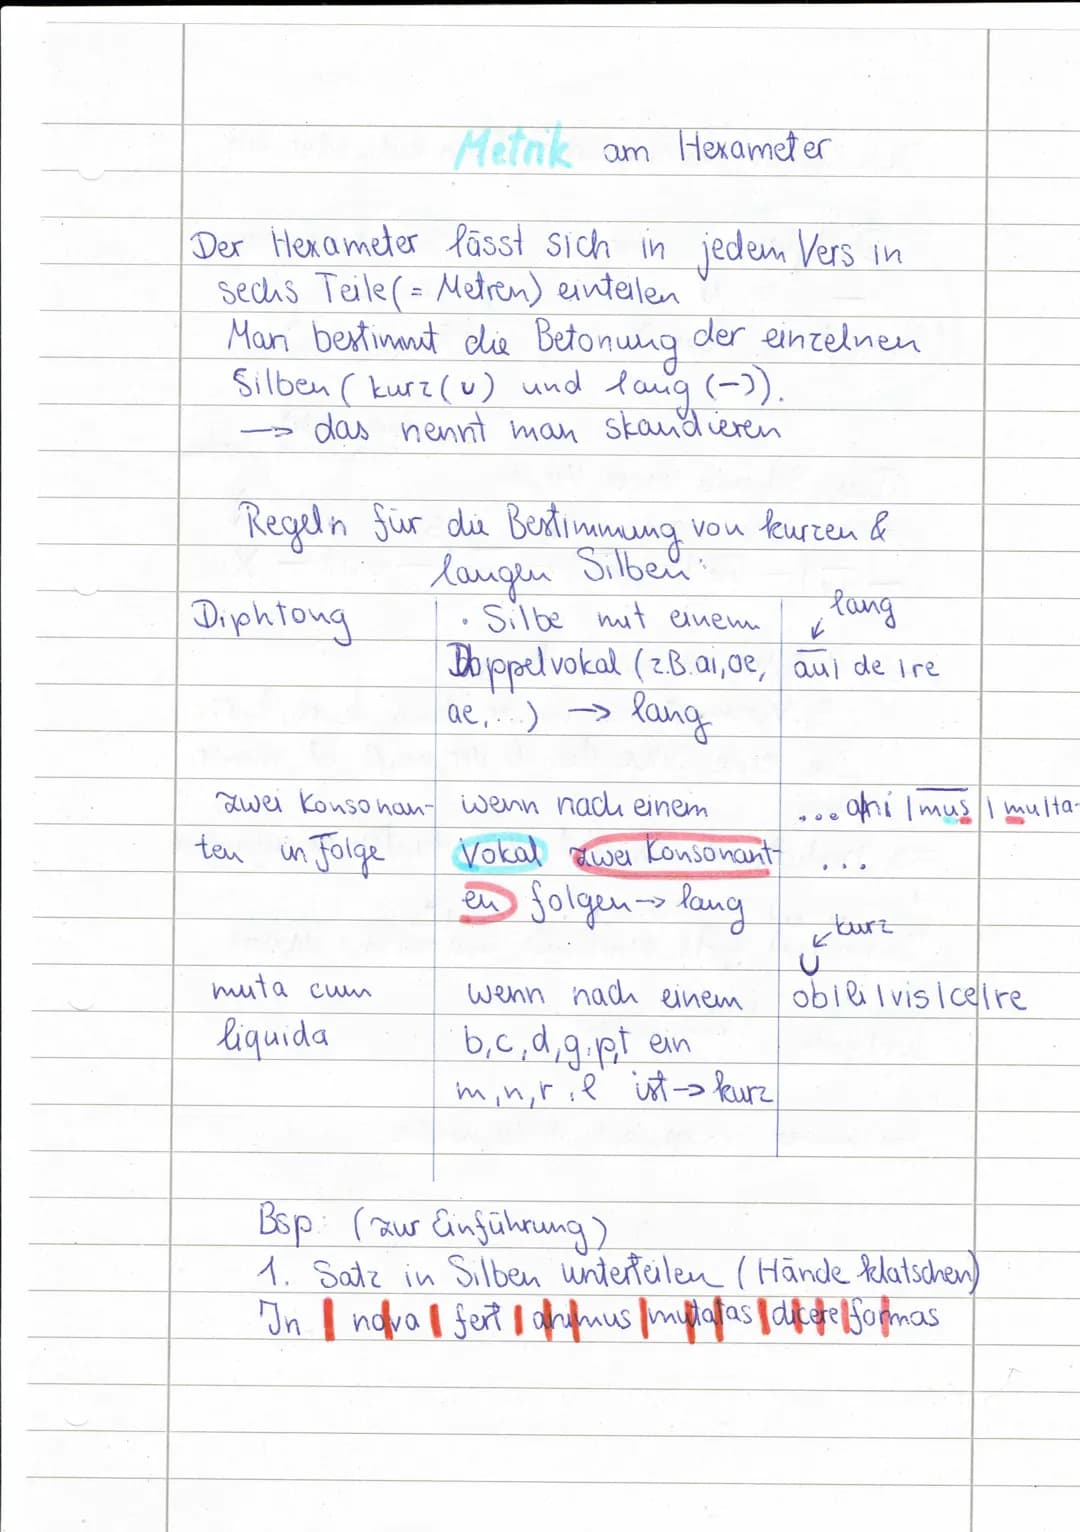 Metrik am Hexameter
Der Hexameter lässt sich in jedem Vers in
sechs Teile (= Metren) einteilen
Man bestimmt die Betonung der einzelnen
Silben (kurz (∪) und lang (−)).
→ das nennt man skandieren
Regeln für die Bestimmung von kurzen &
langen Silben:
Diphtong
• Silbe mit einem
Doppelvokal (z.B. ai, oe,
ae, ...) → lang
lang
au| de |re
zwei Konsonan-
ten in Folge
wenn nach einem
Vokal zwei Konsonant-
en folgen → lang
... ani | mus | multa-
...
muta cum
liquida
wenn nach einem
b, c, d, g, p, t ein
m, n, r, l ist → kurz
kurz
∪
ob|li|vis|ce|re
Bsp: (zur Einführung)
1. Satz in Silben unterteilen (Hände klatschen)
In | no|va | fert | a|ni|mus | mu|ta|tas | di|ce|re | for|mas